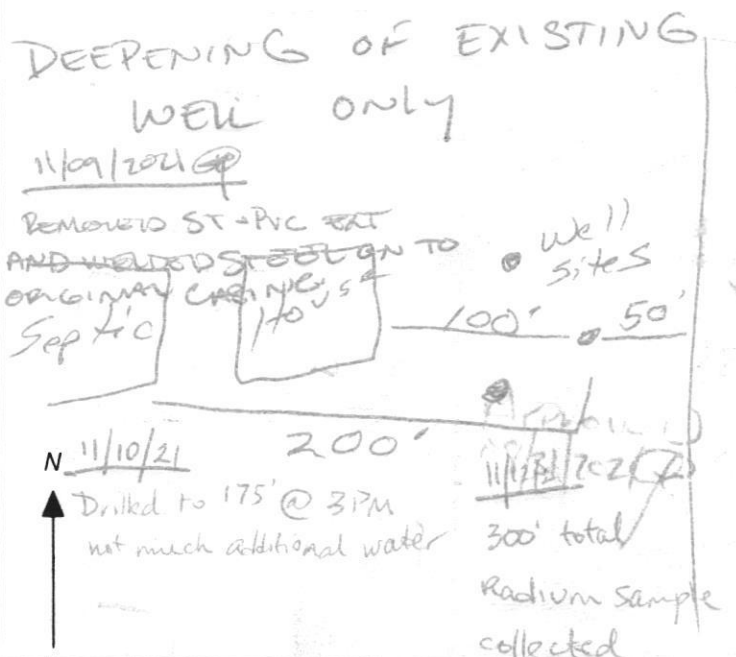 DEEPENING OF EXISTING
WELL ONLY
11/09/2021
REMOVED ST-PVC EXT
AND WELDED STEEL ON TO
ORIGINAL CASING
Well
Sites
Septic
House
100'
50'
200'
N
11/10/21
Drilled to 175' @ 3PM
not much additional water
300' total
Radium Sample
collected